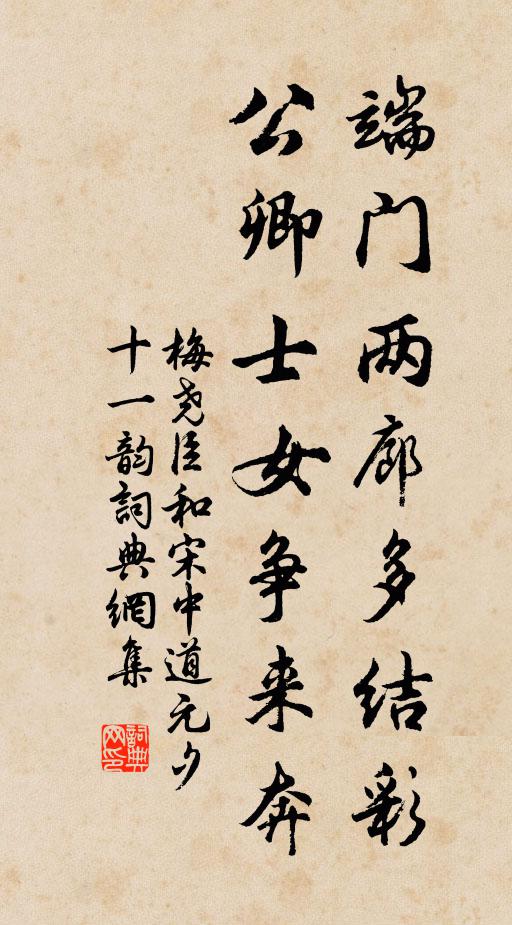 端门两廊多结彩
公卿士女争来奔
梅尧臣和宋中道元夕
十一韵詞典網集
詞典网印